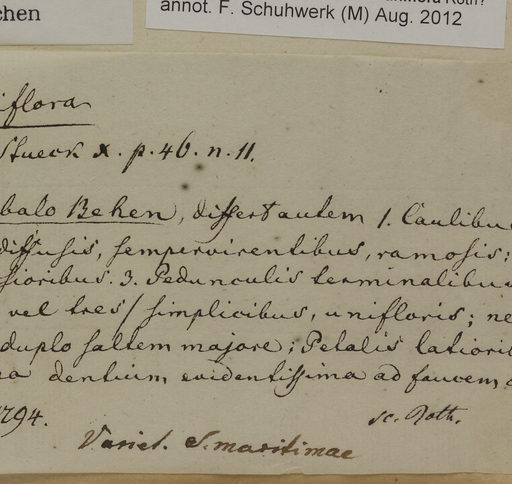 chen
annot. F. Schuhwerk (M) Aug. 2012
iflora
Stueck x. p. 46. n. 11.
balo Behen, differt autem 1. Caulibu
diffusis, sempervirentibus, ramosis;
sioribus. 3. Pedunculis terminalibu
vel tres/ simplicibus, unifloris; ne
duplo saltem majore; Petalis latiorib
dentium evidentissima ad faucem
1794.
sc. Roth.
Variet. S. maritimae